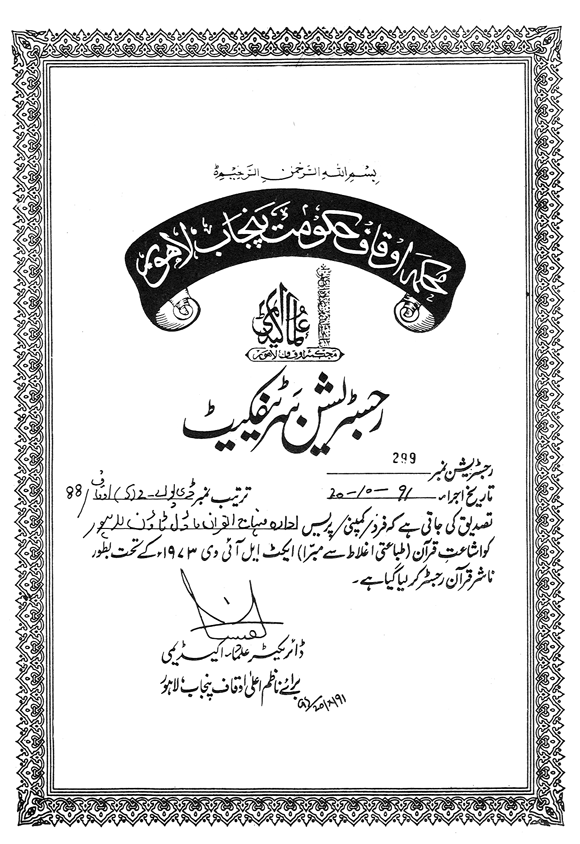 بسم اللہ الرحمن الرحیم
محکمہ اوقاف حکومت پنجاب لاہور
علماء اکیڈمی
محکمہ اوقاف لاہور
رجسٹریشن سرٹیفکیٹ
رجسٹریشن نمبر 299
تاریخ اجراء 20-10-91 ترتیب نمبر ڈی او اے-2 /88
تصدیق کی جاتی ہے کہ فرد / کمپنی / پریس ادارہ منہاج القرآن ماڈل ٹاؤن لاہور
کو اشاعت قرآن (طباعتی اغلاط سے مبرّا) ایکٹ ایل آئی وی ۱۹۷۳ء کے تحت بطور
ناشر قرآن رجسٹر کر لیا گیا ہے۔
ڈائریکٹر علماء اکیڈیمی
برائے ناظم اعلیٰ اوقاف پنجاب لاہور